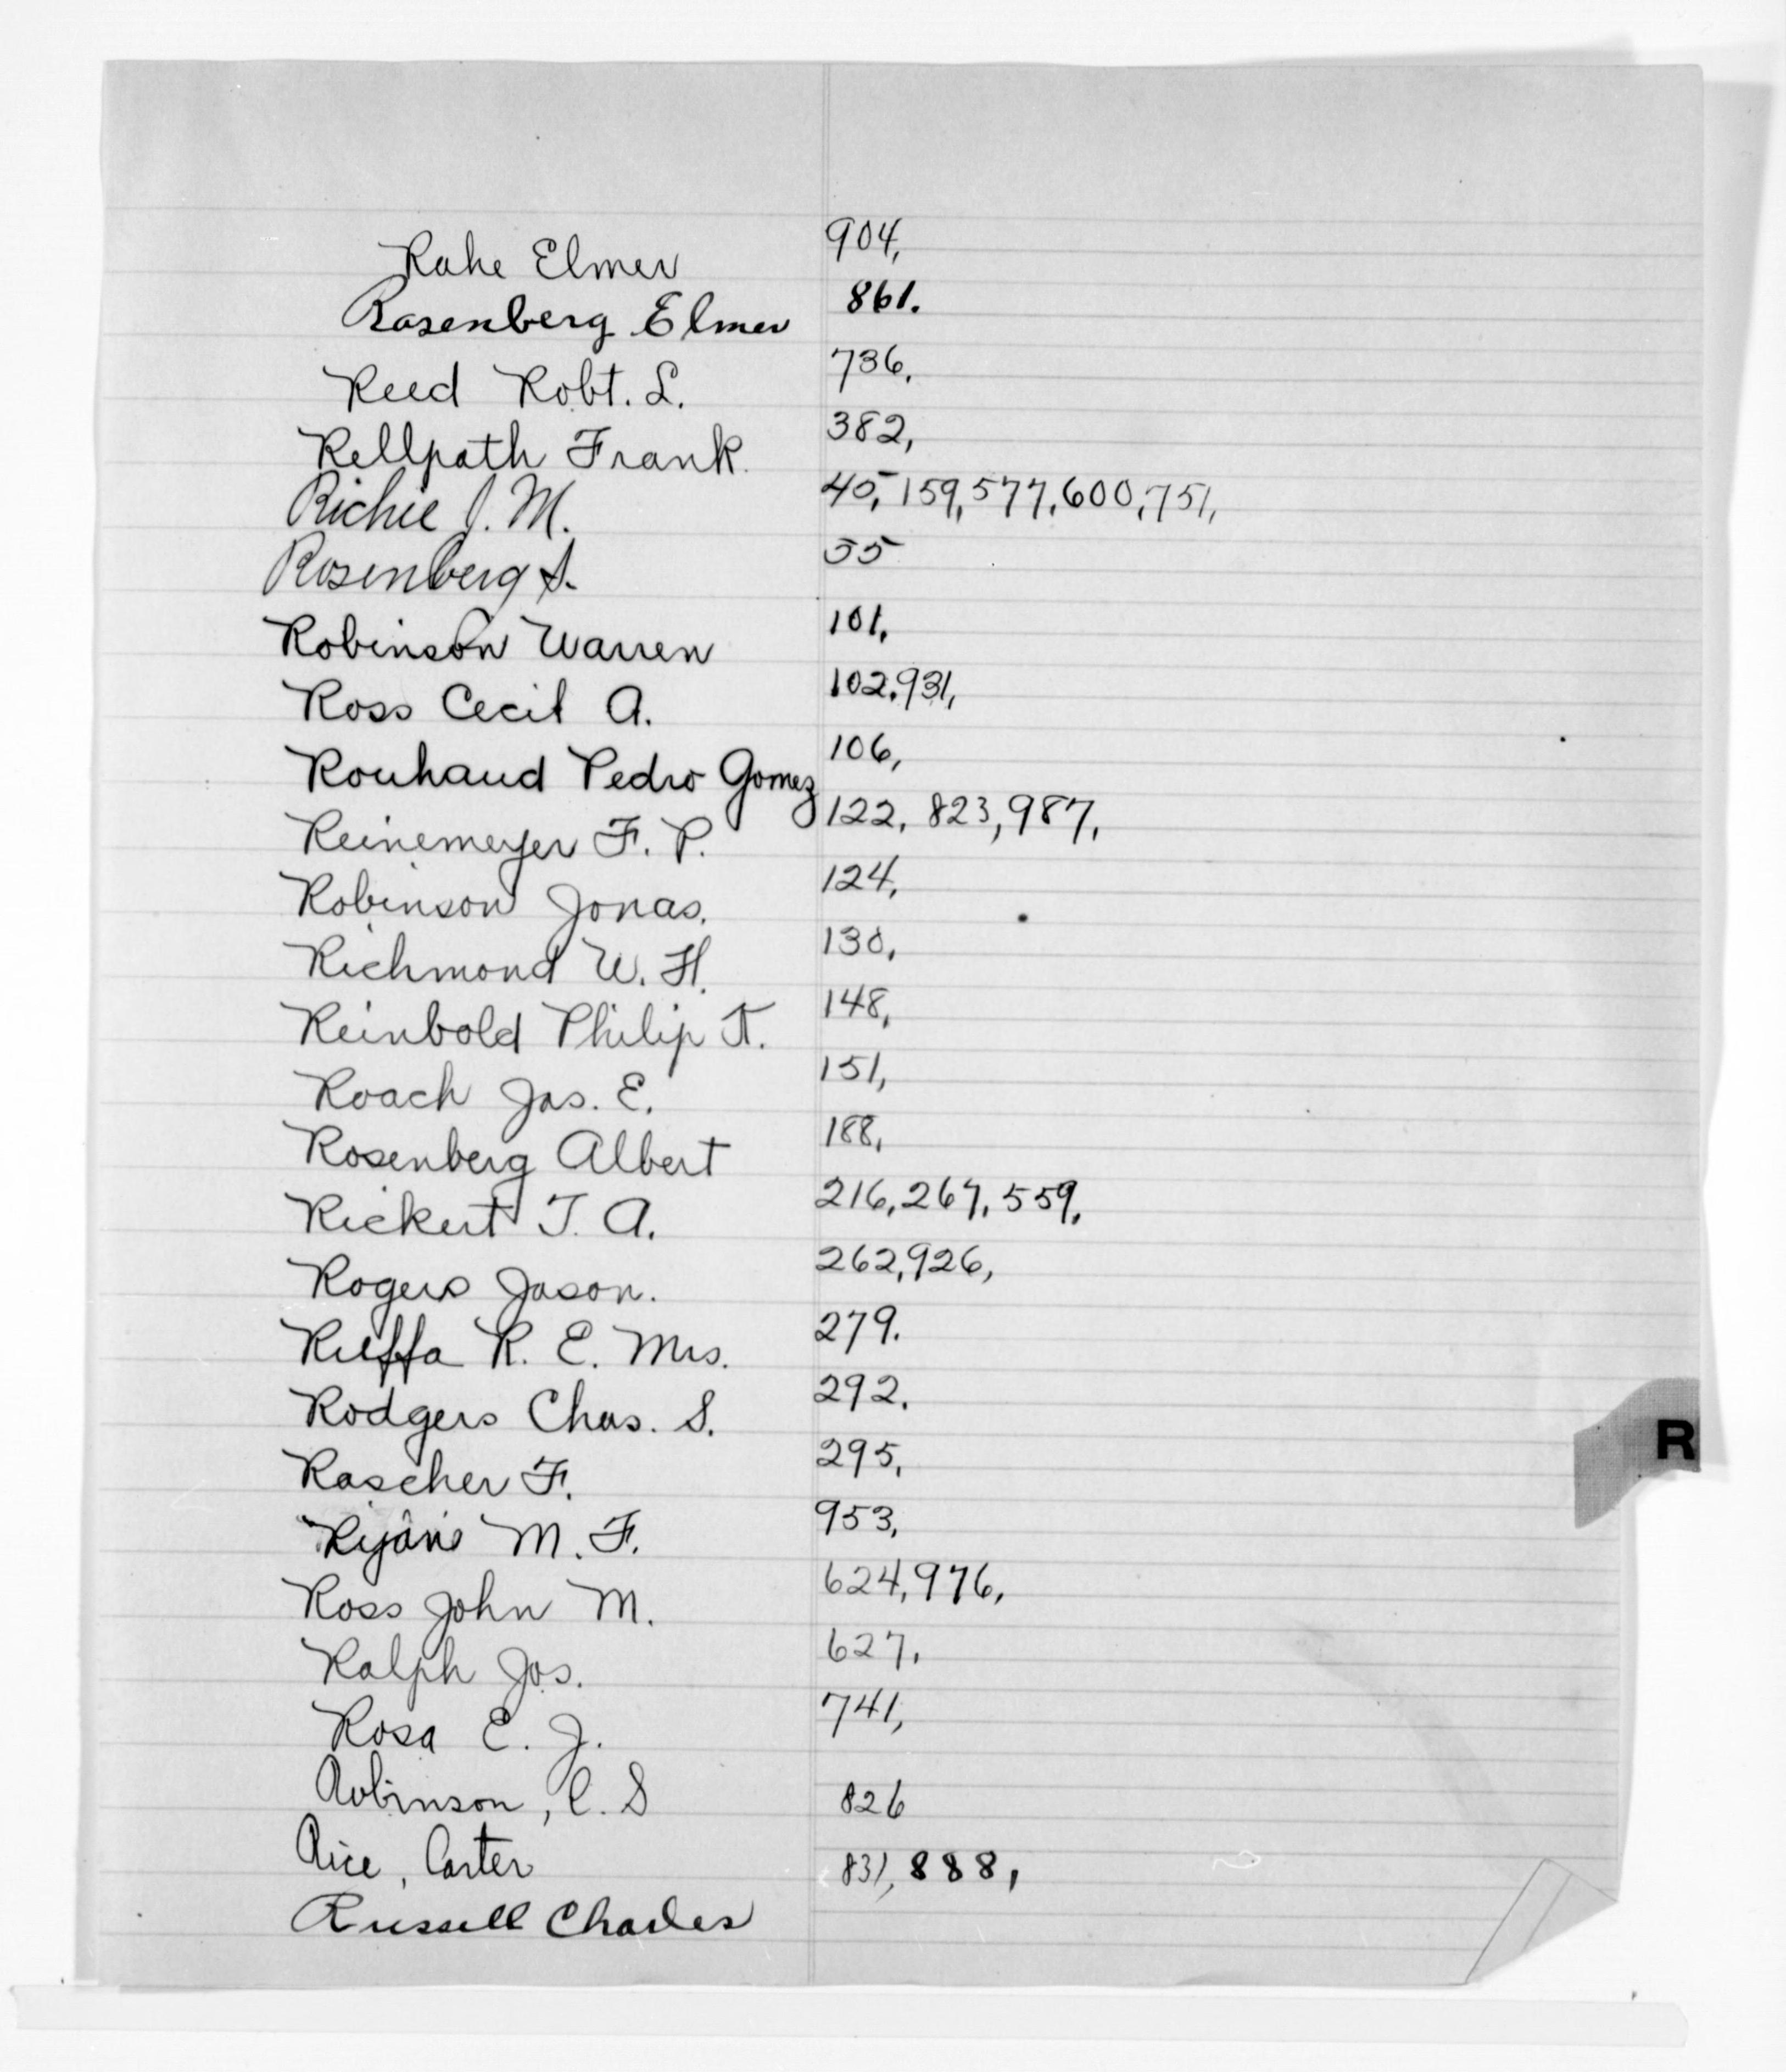 Rahe Elmer 904,
Rosenberg Elmer 861.
Reed Robt. L. 736,
Rellpath Frank 382,
Richie J. M. 45, 159, 577, 600, 751,
Rosenberg S. 55
Robinson Warren 101,
Ross Cecil A. 102, 931,
Rouhaud Pedro Gomez 106,
Reinemeyer F. P. 122, 823, 987,
Robinson Jonas. 124,
Richmond W. H. 130,
Reinbold Philip K. 148,
Roach Jas. E. 151,
Rosenberg Albert 188,
Rickert T. A. 216, 267, 559,
Rogers Jason. 262, 926,
Rieffa R. E. Mrs. 279.
Rodgers Chas. S. 292.
Rascher F. 295,
M. F. 953,
Ross John M. 624, 976,
Ralph Jos. 627,
Rosa E. J. 741,
Robinson, C. S 826
Rice, Carter 831, 888,
Russell Charles
R